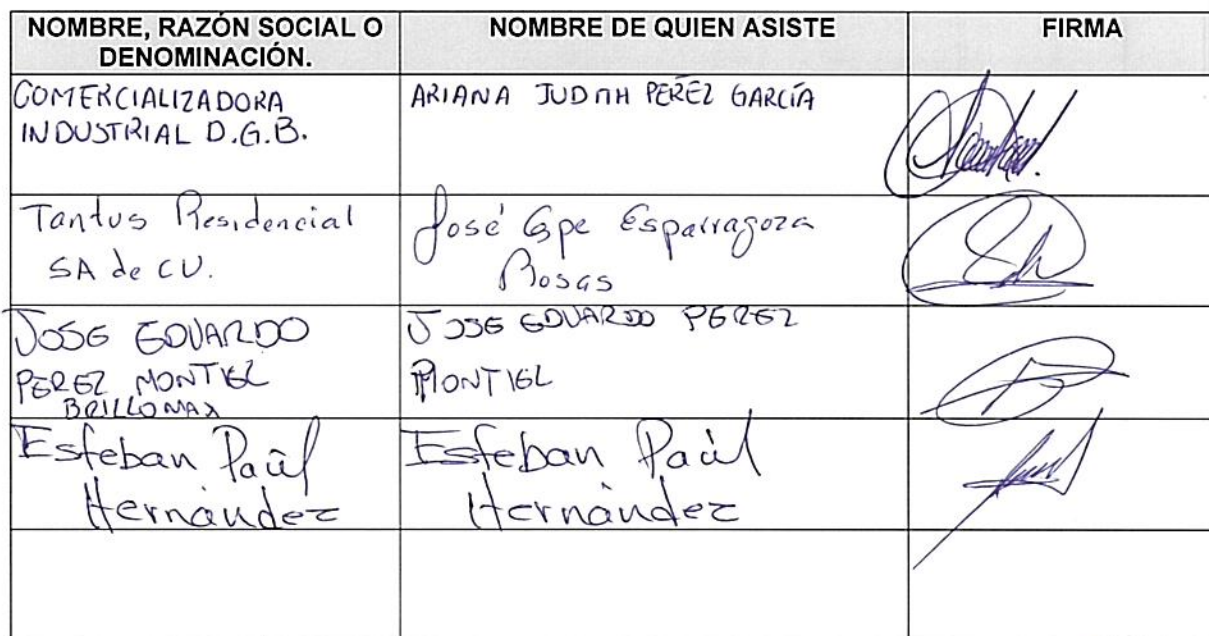 NOMBRE, RAZÓN SOCIAL O
DENOMINACIÓN.
NOMBRE DE QUIEN ASISTE
FIRMA
COMERCIALIZADORA
INDUSTRIAL D.G.B.
ARIANA JUDITH PÉREZ GARCÍA
Tantus Residencial
SA de CV.
José Gpe Esparragoza
Rosas
JOSE EDUARDO
PEREZ MONTIEL
BRILLOMAX
JOSE EDUARDO PEREZ
MONTIEL
Esteban Paúl
Hernández
Esteban Paúl
Hernández